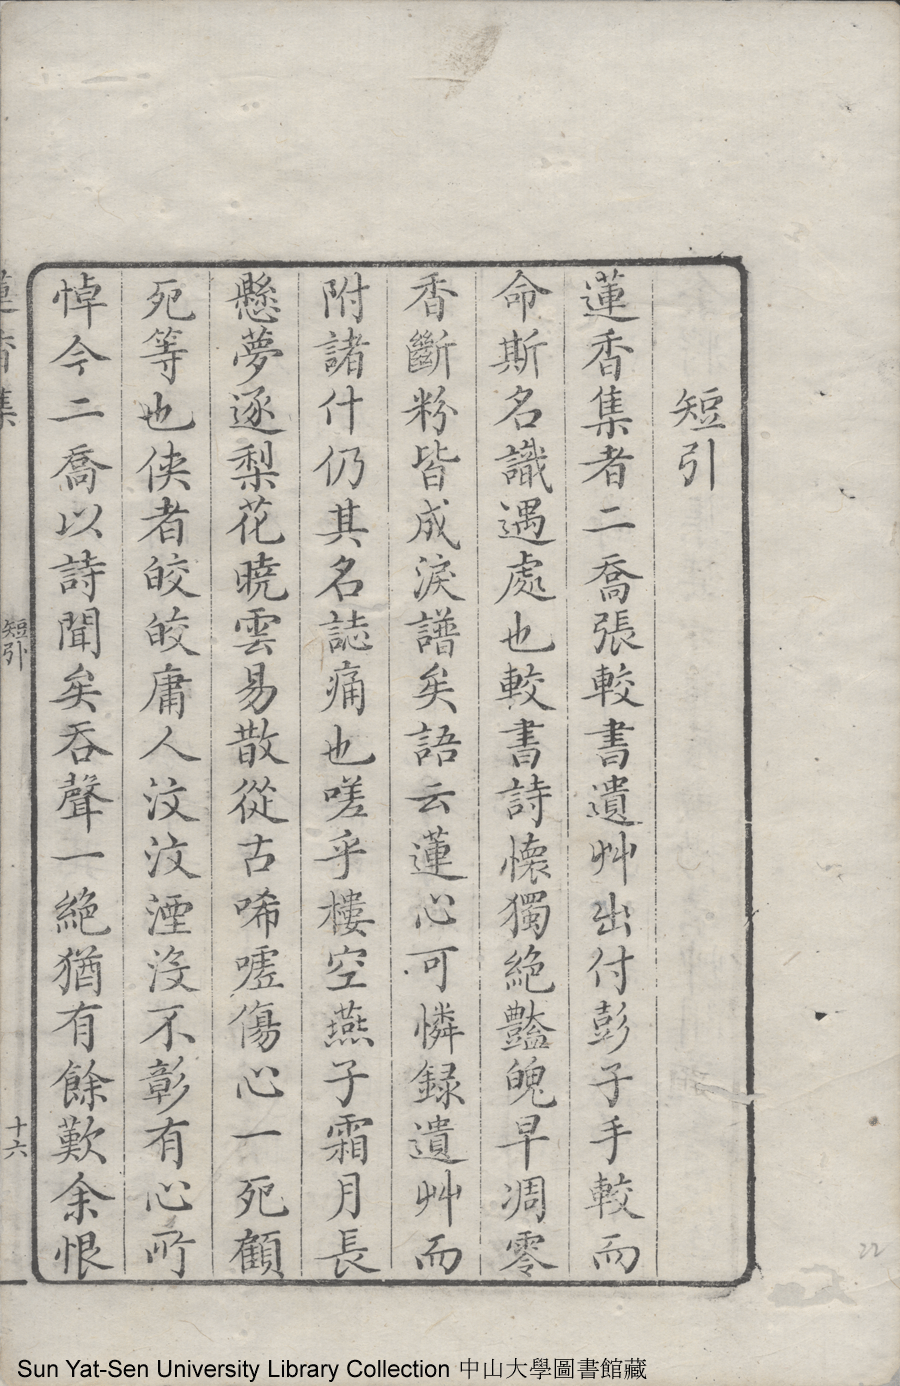 短引
蓮香集者二喬張較書遺艸出付彭子手較而
命斯名識遇處也較書詩懷獨絕豔魄早凋零
香斷粉皆成淚譜矣語云蓮心可憐録遺艸而
附諸什仍其名誌痛也嗟乎樓空燕子霜月長
懸夢逐梨花曉雲易散從古唏噓傷心一死顧
死等也俠者皎皎庸人汶汶湮沒不彰有心所
悼今二喬以詩聞矣吞聲一絕猶有餘歎余恨
蓮香集
短引
十六
22
Sun Yat-Sen University Library Collection 中山大學圖書館藏